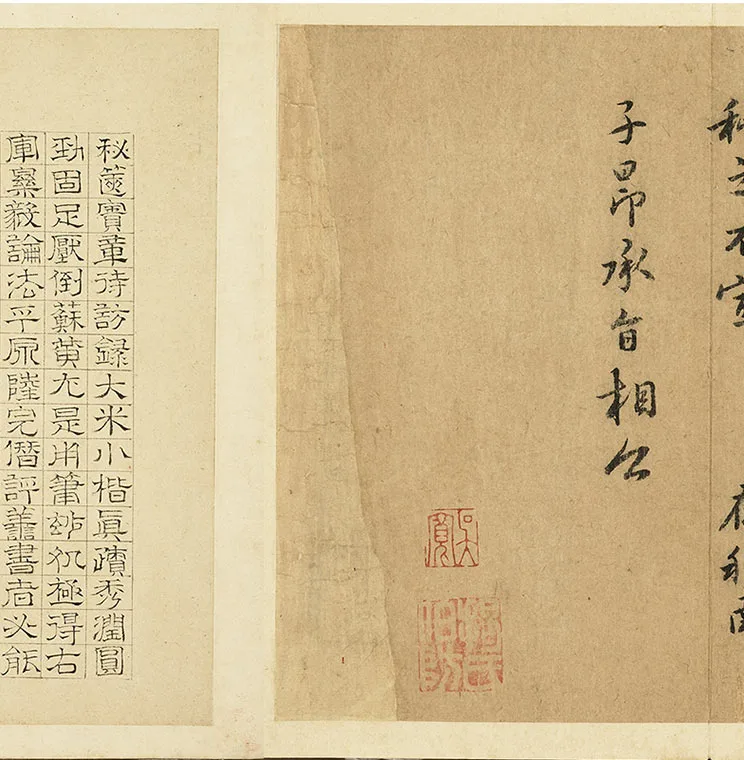 不宣
子昂承旨相公
秘篋寶章待訪録大米小楷真蹟秀潤圓
勁固足壓倒蘇黄尤是用筆妙処極得右
軍樂毅論法平原陸完僭評善書者必能